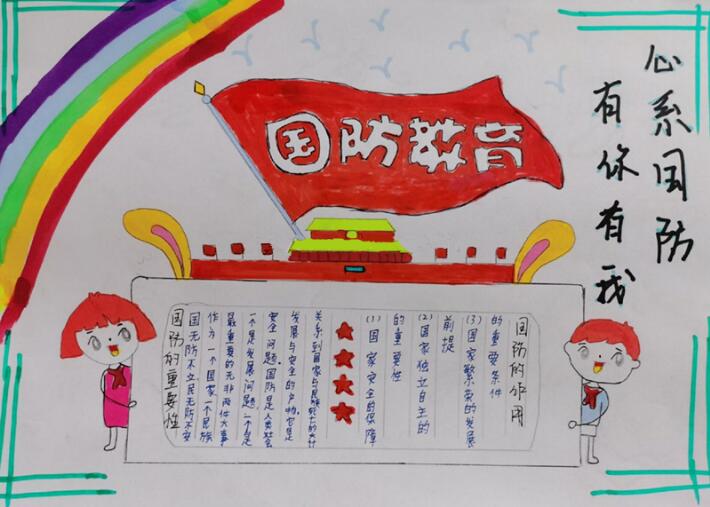 国防教育
心系国防
有你有我
国防的重要性
国无防不立民无防不安
作为一个国家一个民族
最重要的无非两件大事
一个是发展问题,一个是
安全问题.国防是人类社会
发展与安全的产物,它是
关系到国家与民族的大计
(1)国家安全的保障
的重要性
(2)国家独立自主的
前提
(3)国家繁荣的发展
的重要条件
国防的作用